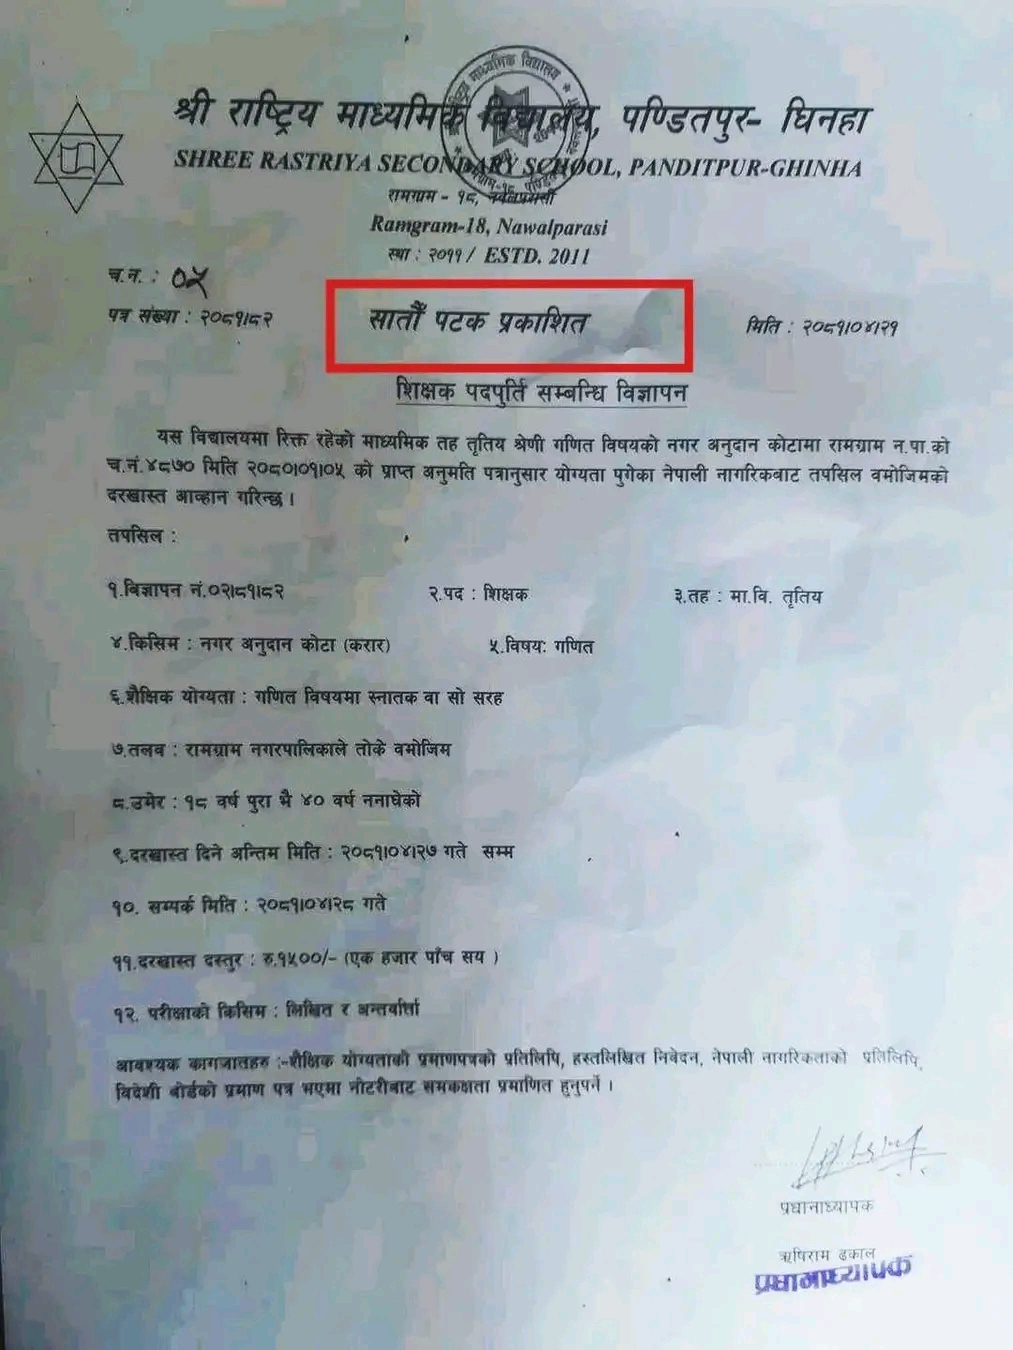 श्री राष्ट्रिय माध्यमिक विद्यालय, पण्डितपुर- घिनहा
SHREE RASTRIYA SECONDARY SCHOOL, PANDITPUR-GHINHA
रामग्राम - १८, नवलपरासी
Ramgram-18, Nawalparasi
स्था : २०११ / ESTD. 2011
च.न. : ०५
पत्र संख्या : २०८१।८२
सातौँ पटक प्रकाशित
मिति : २०८१।०४।२१
शिक्षक पदपुर्ति सम्बन्धि विज्ञापन
यस विद्यालयमा रिक्त रहेको माध्यमिक तह तृतिय श्रेणी गणित विषयको नगर अनुदान कोटामा रामग्राम न.पा.को
च.नं.४८७० मिति २०८०।०१।०५ को प्राप्त अनुमति पत्रानुसार योग्यता पुगेका नेपाली नागरिकबाट तपसिल वमोजिमको
दरखास्त आव्हान गरिन्छ ।
तपसिल :
१.विज्ञापन नं.०२।८१।८२ २.पद : शिक्षक ३.तह : मा.वि. तृतिय
४.किसिम : नगर अनुदान कोटा (करार) ५.विषय: गणित
६.शैक्षिक योग्यता : गणित विषयमा स्नातक वा सो सरह
७.तलव : रामग्राम नगरपालिकाले तोके वमोजिम
८.उमेर : १८ वर्ष पुरा भै ४० वर्ष ननाघेको
९.दरखास्त दिने अन्तिम मिति : २०८१।०४।२७ गते सम्म
१०. सम्पर्क मिति : २०८१।०४।२८ गते
११.दरखास्त दस्तुर : रु.१५००/- (एक हजार पाँच सय )
१२. परीक्षाको किसिम : लिखित र अन्तर्वार्ता
आवश्यक कागजातहरु :-शैक्षिक योग्यताको प्रमाणपत्रको प्रतिलिपि, हस्तलिखित निवेदन, नेपाली नागरिकताको प्रतिलिपि,
विदेशी बोर्डको प्रमाण पत्र भएमा नोटरीबाट समकक्षता प्रमाणित हुनुपर्ने ।
प्रधानाध्यापक
ऋषिराम ढकाल
प्रधानाध्यापक